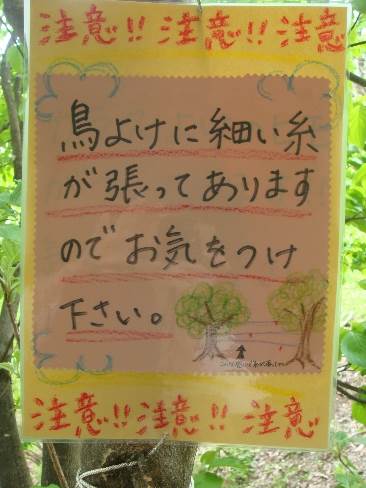 注意!! 注意!! 注意
鳥よけに細い糸
が張ってあります
のでお気をつけ
下さい。
注意!! 注意!! 注意